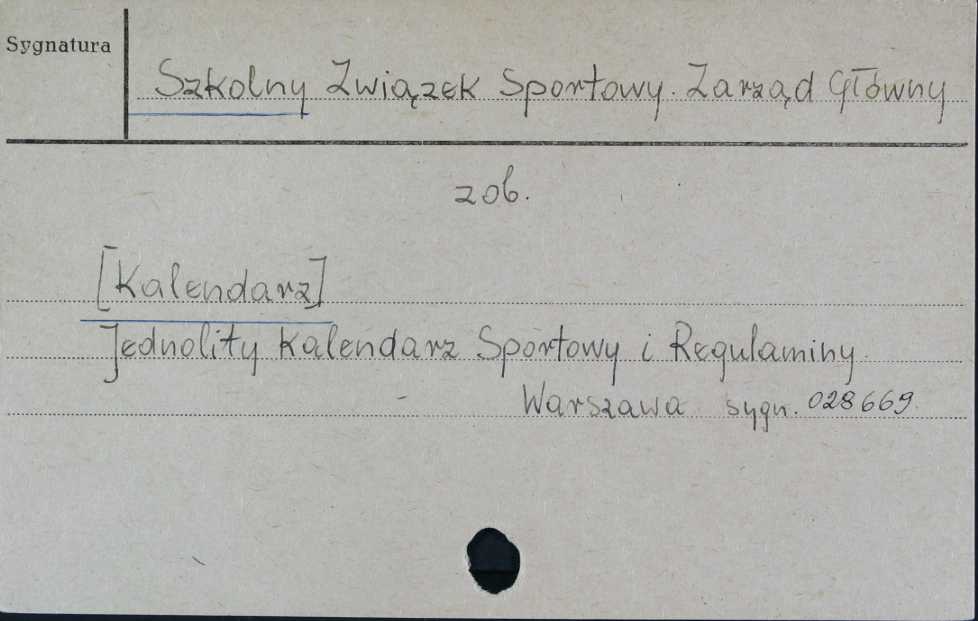 Sygnatura
Szkolny Związek Sportowy. Zarząd Główny
zob.
[Kalendarz]
Jednolity Kalendarz Sportowy i Regulaminy.
Warszawa sygn. 028669.